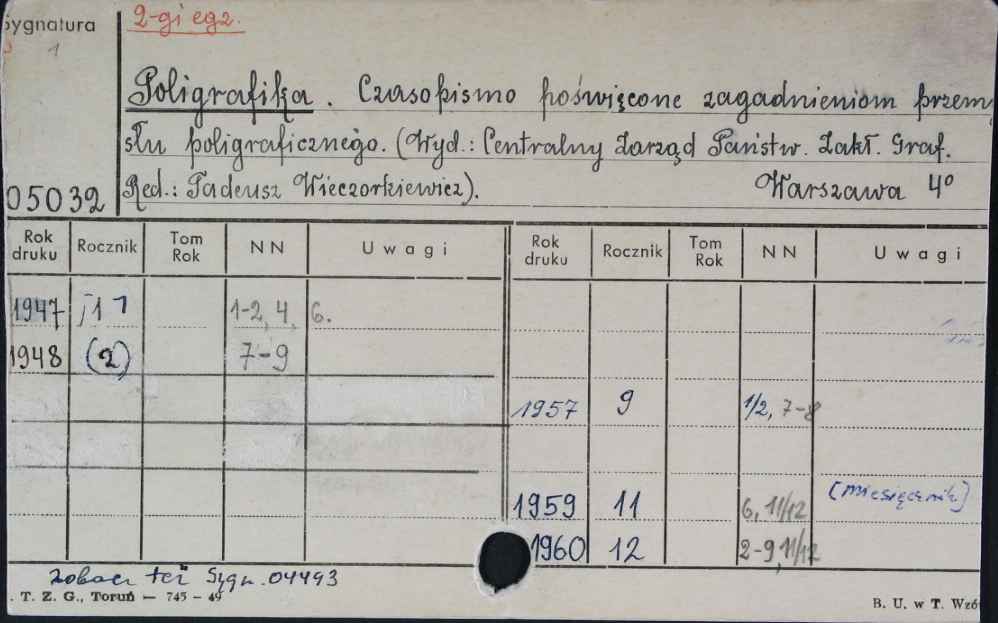 Sygnatura
1
2-gi egz.
Poligrafika. Czasopismo poświęcone zagadnieniom przemy
słu poligraficznego. (Wyd.: Centralny Zarząd Państw. Zakł. Graf.
Red.: Tadeusz Wieczorkiewicz). Warszawa 4°
05032
Rok druku Rocznik Tom Rok NN Uwagi Rok druku Rocznik Tom Rok NN Uwagi
1947 1 1-2, 4, 6.
1948 (2) 7-9
1957 9 1/2, 7-8
1959 11 6, 11/12 (miesięcznik)
1960 12 2-9, 11/12
zobacz też Sygn. 04493
. T. Z. G., Toruń — 745 - 49
B. U. w T. Wzó